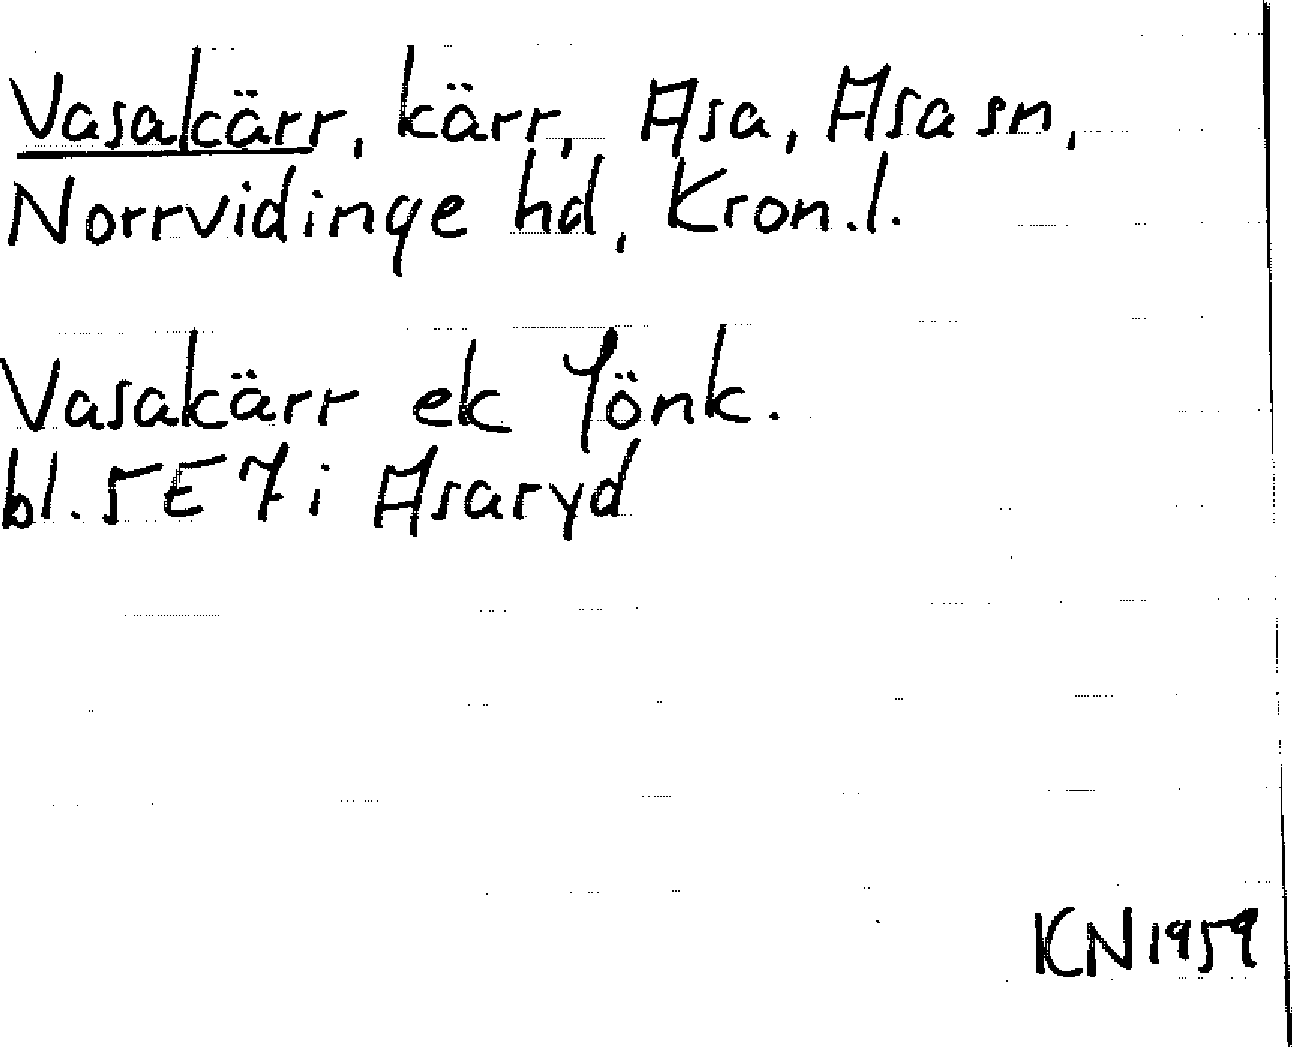 Vasakärr, kärr, Asa, Asa sn,
Norrvidinge hd, Kron.l.
Vasakärr ek Jönk.
bl. 5E7 i Asaryd
KN 1959